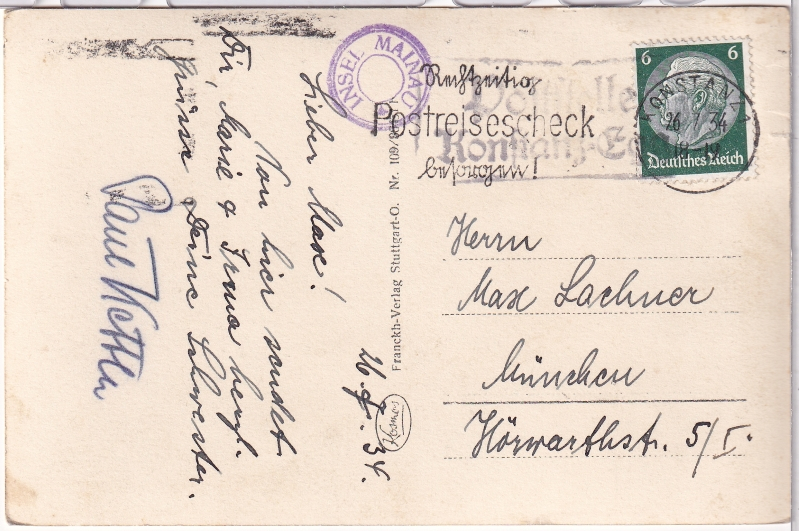 Lieber Max!
Von hier sendet
Dir, Marie & Irma herzl.
Grüsse Deine Schwester.
26.7.34.
INSEL MAINAU
Rechtzeitig
Postreisescheck
besorgen!
Konstanz
KONSTANZ
26 7 34
6 6
Deutsches Reich
Franckh-Verlag Stuttgart-O. Nr. 109/
Kosmos
Herrn
Max Lachner
München
Hörwarthstr. 5/I.